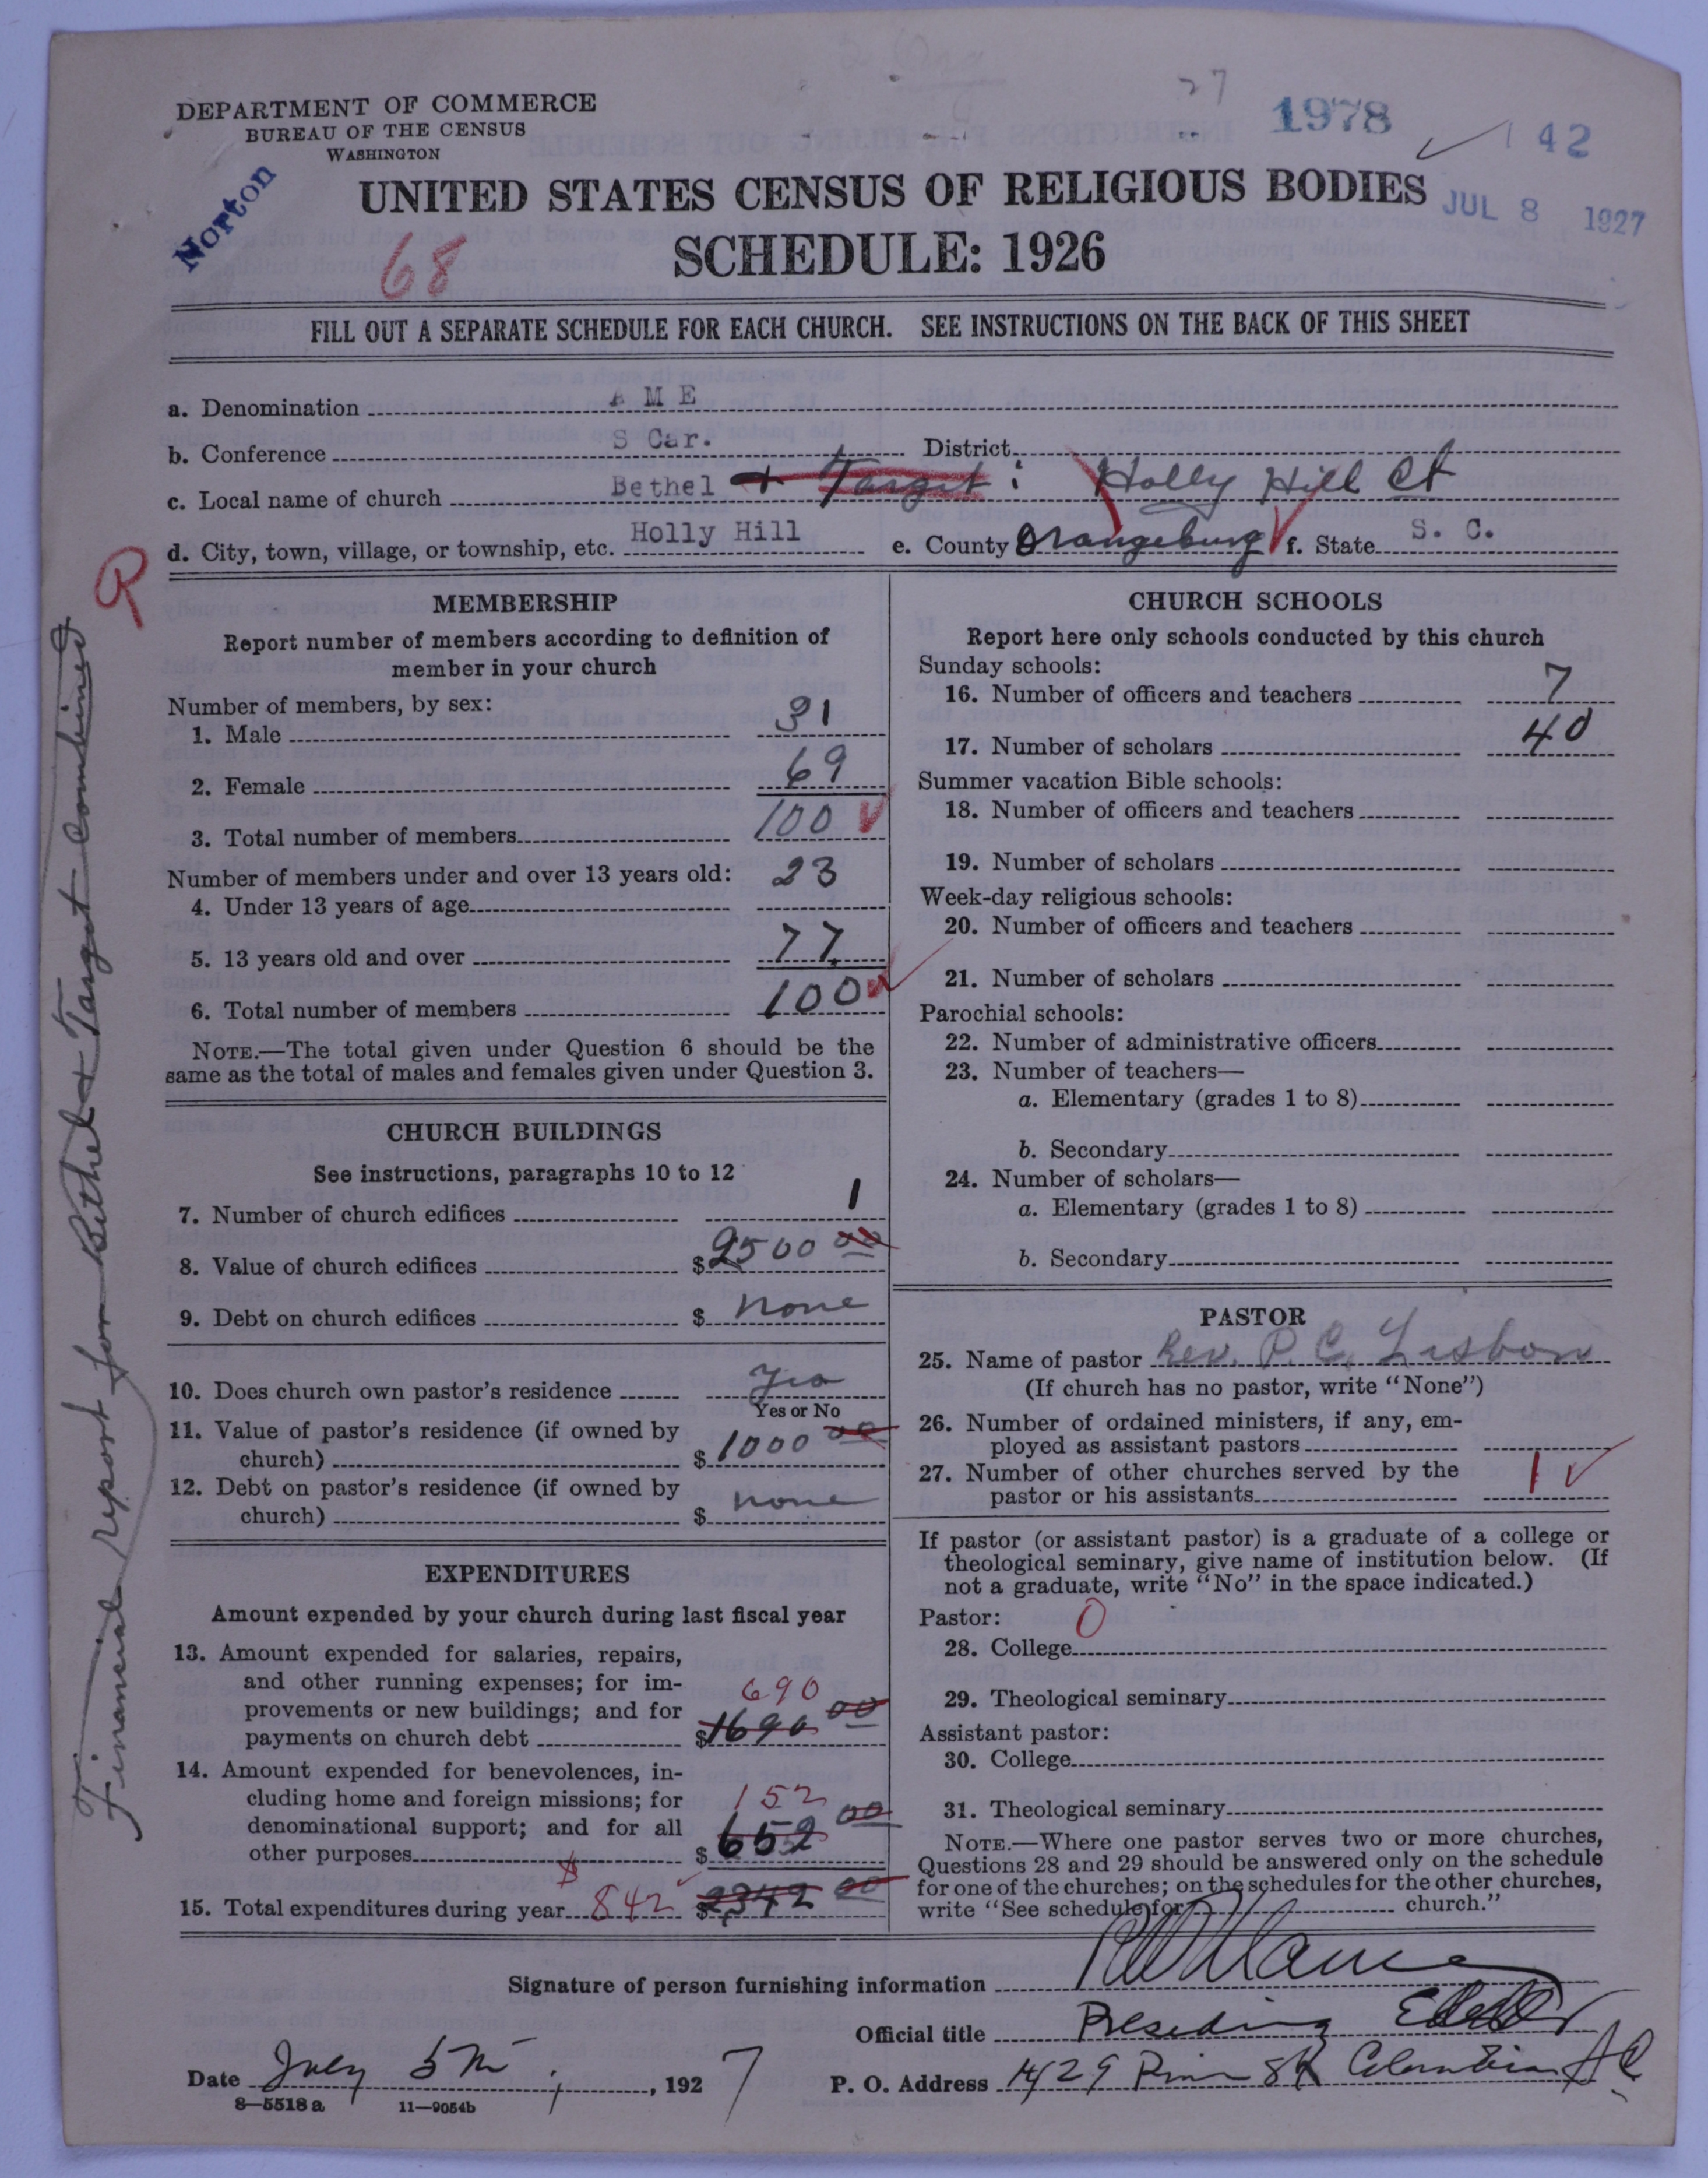 27
1978
142
DEPARTMENT OF COMMERCE
BUREAU OF THE CENSUS
WASHINGTON
Norton
UNITED STATES CENSUS OF RELIGIOUS BODIES
JUL 8 1927
68
SCHEDULE: 1926
FILL OUT A SEPARATE SCHEDULE FOR EACH CHURCH. SEE INSTRUCTIONS ON THE BACK OF THIS SHEET
a. Denomination A M E
b. Conference S Car. District
c. Local name of church Bethel + Target : Holly Hill Ct
d. City, town, village, or township, etc. Holly Hill e. County Orangeburg f. State S. C.
R
Financial report for Bethel & Target combined
MEMBERSHIP
Report number of members according to definition of
member in your church
Number of members, by sex:
1. Male 31
2. Female 69
3. Total number of members 100
Number of members under and over 13 years old:
4. Under 13 years of age 23
5. 13 years old and over 77
6. Total number of members 100
NOTE.—The total given under Question 6 should be the
same as the total of males and females given under Question 3.
CHURCH BUILDINGS
See instructions, paragraphs 10 to 12
7. Number of church edifices 1
8. Value of church edifices $2500 00
9. Debt on church edifices $ none
10. Does church own pastor's residence Yes
Yes or No
11. Value of pastor's residence (if owned by
church) $1000 00
12. Debt on pastor's residence (if owned by
church) $ none
EXPENDITURES
Amount expended by your church during last fiscal year
13. Amount expended for salaries, repairs,
and other running expenses; for im-
provements or new buildings; and for 690
payments on church debt $1690 00
14. Amount expended for benevolences, in-
cluding home and foreign missions; for 152
denominational support; and for all
other purposes $652 00
15. Total expenditures during year $ 842 $2342 00
CHURCH SCHOOLS
Report here only schools conducted by this church
Sunday schools:
16. Number of officers and teachers 7
17. Number of scholars 40
Summer vacation Bible schools:
18. Number of officers and teachers
19. Number of scholars
Week-day religious schools:
20. Number of officers and teachers
21. Number of scholars
Parochial schools:
22. Number of administrative officers
23. Number of teachers—
a. Elementary (grades 1 to 8)
b. Secondary
24. Number of scholars—
a. Elementary (grades 1 to 8)
b. Secondary
PASTOR
25. Name of pastor Rev. P. C. Lisbon
(If church has no pastor, write "None")
26. Number of ordained ministers, if any, em-
ployed as assistant pastors
27. Number of other churches served by the
pastor or his assistants 1
If pastor (or assistant pastor) is a graduate of a college or
theological seminary, give name of institution below. (If
not a graduate, write "No" in the space indicated.)
Pastor: 0
28. College
29. Theological seminary
Assistant pastor:
30. College
31. Theological seminary
NOTE.—Where one pastor serves two or more churches,
Questions 28 and 29 should be answered only on the schedule
for one of the churches; on the schedules for the other churches,
write "See schedule for church."
Signature of person furnishing information
Official title Presiding Elder
Date July 5th, 1927 P. O. Address 1429 Pine St Columbia S C
8—5518 a 11—9054b